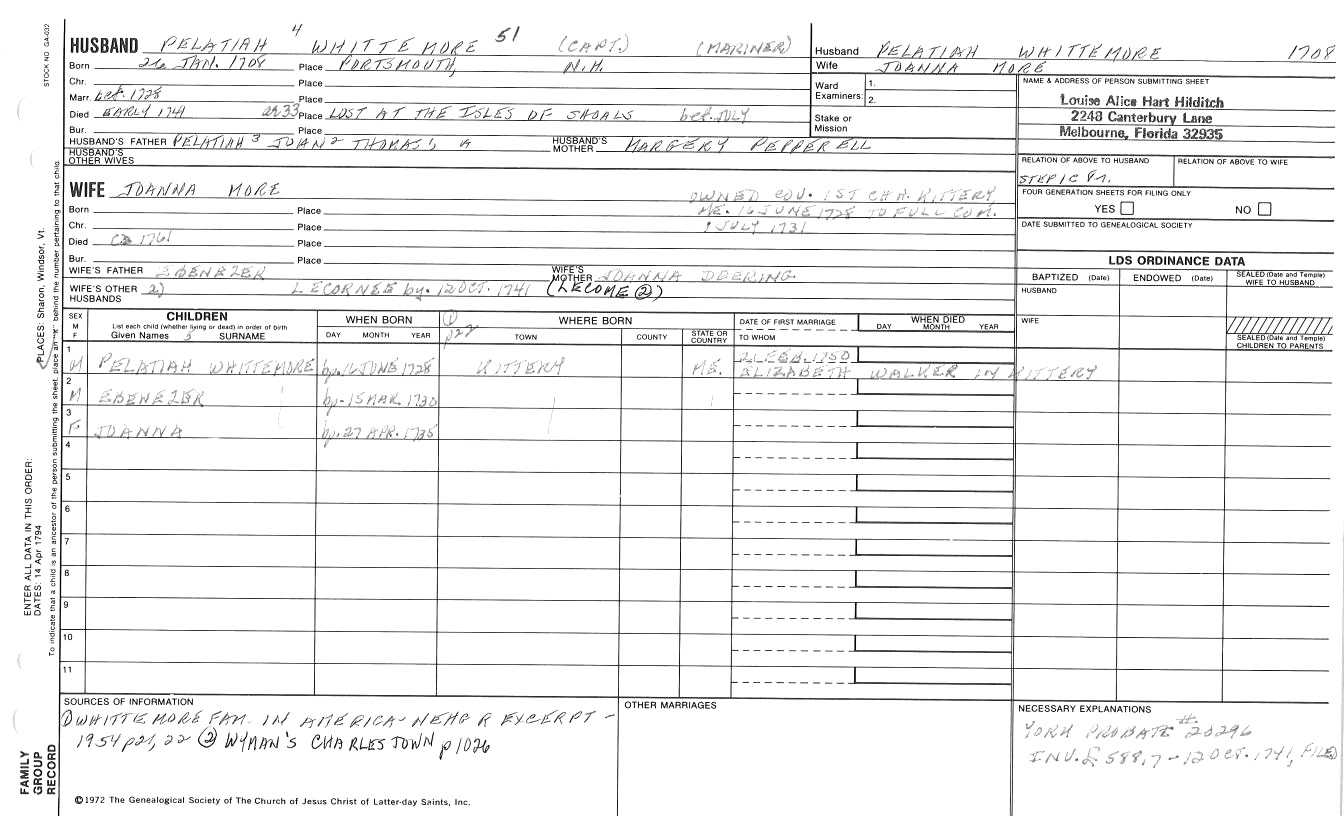 STOCK NO. GA-032
HUSBAND PELATIAH 4 WHITTEMORE 51 (CAPT.) (MARINER)
Born JAN. 1708 Place PORTSMOUTH, N.H.
Chr. Place
Marr. bef. 1728 Place
Died EARLY 1741 ae 33 Place LOST AT THE ISLES OF SHOALS bef. JULY
Bur. Place
HUSBAND'S FATHER PELATIAH 3 JOHN 2 THOMAS 1 HUSBAND'S MOTHER MARGERY PEPPERELL
HUSBAND'S OTHER WIVES
WIFE JOANNA MORE
OWNED COV. 1ST CHH. KITTERY
ME. 16 JUNE 1728 TO FULL COM.
JULY 1731
Born Place
Chr. Place
Died 1761 Place
Bur. Place
WIFE'S FATHER EBENEZER WIFE'S MOTHER JOANNA DEERING
WIFE'S OTHER HUSBANDS 2) LECORNEE by. 12 OCT. 1741 (LECOME ②)
Husband PELATIAH WHITTEMORE 1708
Wife JOANNA MORE
Ward Examiners: 1.
2.
Stake or Mission
NAME & ADDRESS OF PERSON SUBMITTING SHEET
Louise Alice Hart Hilditch
2248 Canterbury Lane
Melbourne, Florida 32935
RELATION OF ABOVE TO HUSBAND RELATION OF ABOVE TO WIFE
FOUR GENERATION SHEETS FOR FILING ONLY
YES NO
DATE SUBMITTED TO GENEALOGICAL SOCIETY
LDS ORDINANCE DATA
BAPTIZED (Date) ENDOWED (Date) SEALED (Date and Temple) WIFE TO HUSBAND
HUSBAND
WIFE
SEALED (Date and Temple) CHILDREN TO PARENTS
SEX M F
CHILDREN
List each child (whether living or dead) in order of birth
Given Names SURNAME
WHEN BORN
DAY MONTH YEAR
① p22
WHERE BORN
TOWN COUNTY STATE OR COUNTRY
DATE OF FIRST MARRIAGE
TO WHOM
WHEN DIED
DAY MONTH YEAR
1 M PELATIAH WHITTEMORE bp. 16 JUNE 1728 KITTERY ME. FEB. 1750
ELIZABETH WALKER IN KITTERY
2 M EBENEZER bp. 15 MAR. 1730
3 F JOANNA bp. 27 APR. 1735
4
5
6
7
8
9
10
11
SOURCES OF INFORMATION
① WHITTEMORE FAM. IN AMERICA - NEHG R EXCERPT -
1954 p21, 22 ② WYMAN'S CHARLESTOWN p1026
OTHER MARRIAGES
NECESSARY EXPLANATIONS
YORK PROBATE # 20296
INV. £ 588,7 - 12 OCT. 1741, FILED
©1972 The Genealogical Society of The Church of Jesus Christ of Latter-day Saints, Inc.
FAMILY GROUP RECORD
ENTER ALL DATA IN THIS ORDER:
DATES: 14 Apr 1794
PLACES: Sharon, Windsor, Vt.
To indicate that a child is an ancestor of the person submitting the sheet, place an "X" behind the number pertaining to that child.